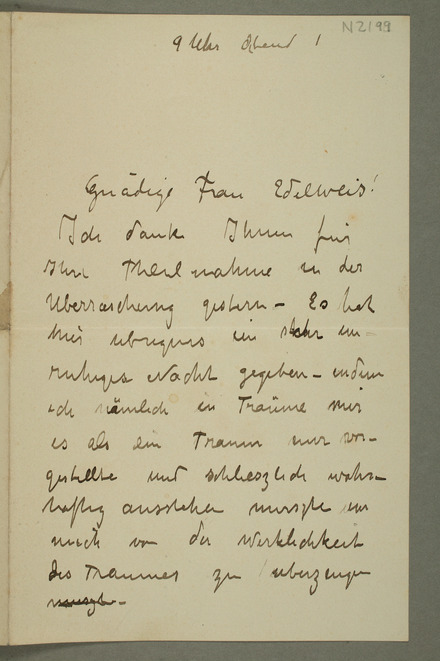 N2199
9 Uhr Abend
Gnädige Frau Edelweis!
Ich danke Ihnen für
Ihre Theilnahme in der
Uberraschung gestern – Es hat
mir ubrigens ein sehr un=
ruhiges Nacht gegeben – indem
ich nämlich in Traüme mir
es als ein Traum nur vor-
gestellte und schlieszlich wahr=
haftig ausstehen muszte um
mich von der Werklichkeit
des Traumes zu uberzeugen
muszte –